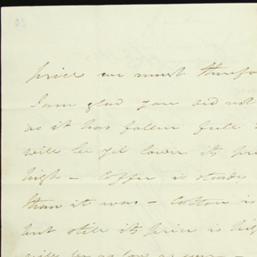 price we must therefo
I am glad you did not
as it has fallen full
will be yet lower its pri
high - Coffee is steady
than it was - Cotton is
but still its price is high
as low as